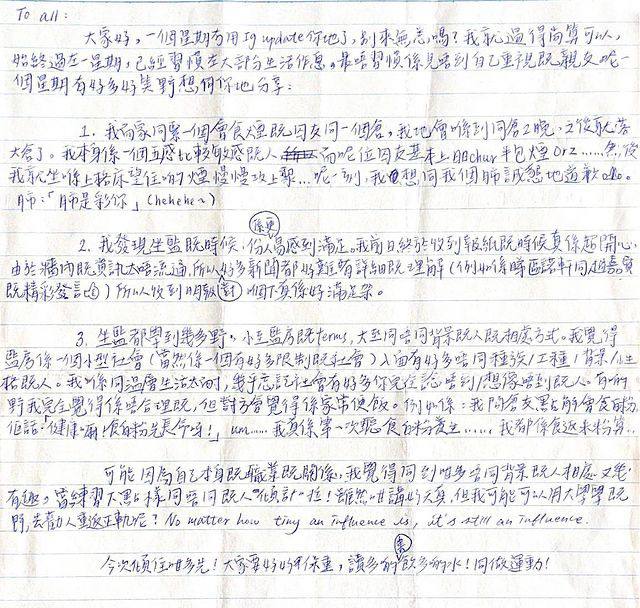 To all:
大家好，一個星期冇用IG update你地了，別來無恙嗎？我就過得尚算可以，
始終過左一星期，已經習慣左大部分生活作息。最唔習慣係見唔到自己重視既親友呢一
個星期有好多好笑野想同你地分享：
1. 我而家同緊一個會食煙既囚友同一個倉，我地會喺到同倉2晚，之後就落
大倉了。我本身係一個五感比較敏感既人而呢位囚友基本上日chur半包煙Orz……然後
我就坐喺上格床望住啲煙慢慢攻上黎…呢一刻，我想同我個肺誠懇地道歉
肺：「肺是彩你」(hehehe~)
2. 我發現坐監既時候，係更易感到滿足。我前日終於收到報紙既時候真係超開心，
由於牆內既資訊太唔流通，所以好多新聞都好難有詳細既理解（例如係睇區諾軒同趙
既精彩發言）所以收到明報對個下真係好滿足架。
3. 坐監都學到幾多野，小至監房既terms，大至同唔同背景既人既相處方式。我覺得
監房係一個小型社會（當然係一個有好多限制既社會）入面有好多唔同種族/工種/背景/性
格既人。我喺同溫層生活太耐，幾乎忘記社會有好多你完全諗唔到/想像唔到既人。有啲
野我完全覺得係唔合理既，但對方會覺得係家常便飯。例如係：我問倉友點解會食白粉
佢話：「健康嘛！食白粉先長命呀！」um……我真係第一次聽食白粉養生……，我都係食返米粉算..
可能因為自己本身既職業既關係，我覺得同到咁多唔同背景既人相處又幾
有趣，當練習下點樣同唔同既人"傾計"啦！雖然咁講好天真，但我可能可以用大學學既
野，去勸人重返正軌呢？No matter how tiny an influence is, it's still an influence.
今次傾住咁多先！大家要好好保重，讀多啲書飲多啲水！同做運動！